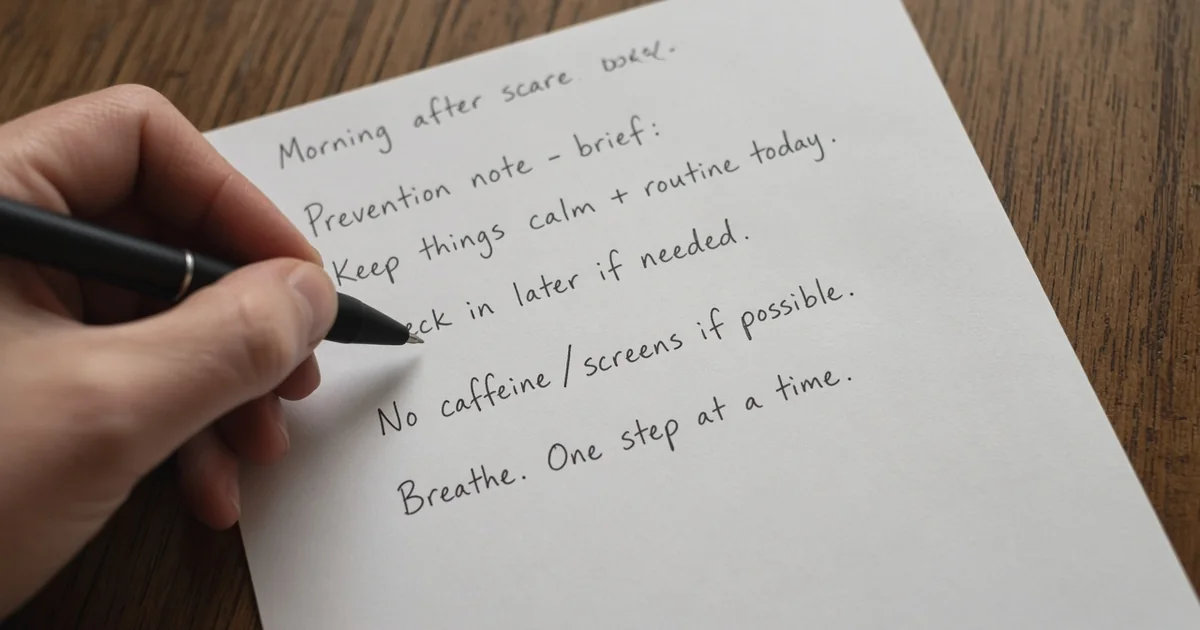 Morning after scare
Prevention note - brief:
Keep things calm + routine today.
in later if needed.
No caffeine / screens if possible.
Breathe. One step at a time.